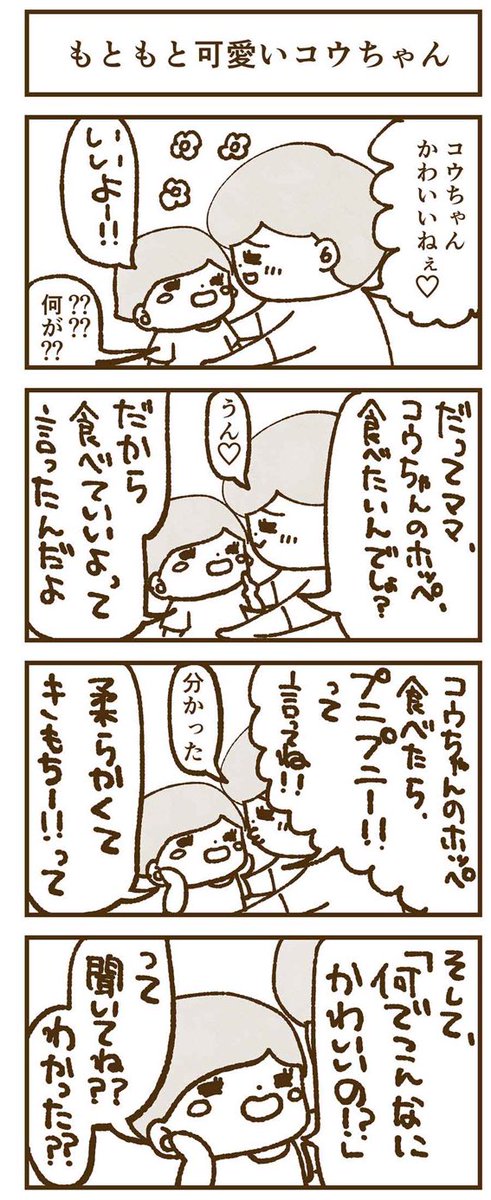 もともと可愛いコウちゃん
コウちゃん
かわいいねぇ♡
いいよー!!
??
??
何が??
だってママ、
コウちゃんのホッペ、
食べたいんでしょ?
うん♡
だから
食べていいよって
言ったんだよ
コウちゃんのホッペ
食べたら、
プニプニー!!
って
言ってね!!
分かった
柔らかくて
きもちー!!って
そして、
「何でこんなに
かわいいの!?」
って
聞いてね??
わかった??